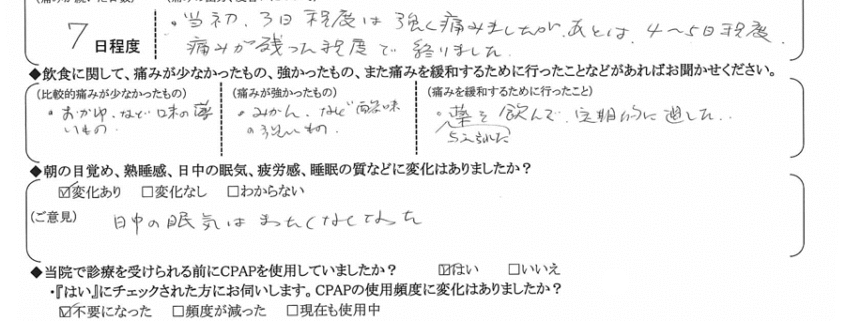 7 日程度
・当初、3日程度は強く痛みましたが、あとは、4〜5日程度、
痛みが残った程度で終りました。
◆飲食に関して、痛みが少なかったもの、強かったもの、また痛みを緩和するために行ったことなどがあればお聞かせください。
(比較的痛みが少なかったもの)
・おかゆ、など 口味の薄
いもの。
(痛みが強かったもの)
・みかん、など 酸味
の強いもの。
(痛みを緩和するために行ったこと)
・薬を飲んで、定期的に過した。
与えられた
◆朝の目覚め、熟睡感、日中の眠気、疲労感、睡眠の質などに変化はありましたか?
☑変化あり □変化なし □わからない
(ご意見)
日中の眠気はまったくなくなった
◆当院で診療を受けられる前にCPAPを使用していましたか? ☑はい □いいえ
・『はい』にチェックされた方にお伺いします。CPAPの使用頻度に変化はありましたか?
☑不要になった □頻度が減った □現在も使用中